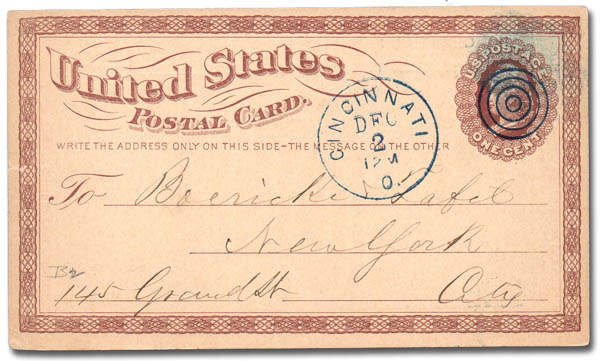 United States
POSTAL CARD.
U.S. POSTAGE
ONE CENT
CINCINNATI
DEC
2
12 M
O.
WRITE THE ADDRESS ONLY ON THIS SIDE-THE MESSAGE ON THE OTHER
To Boericke & Tafel
New York
145 Grand St City